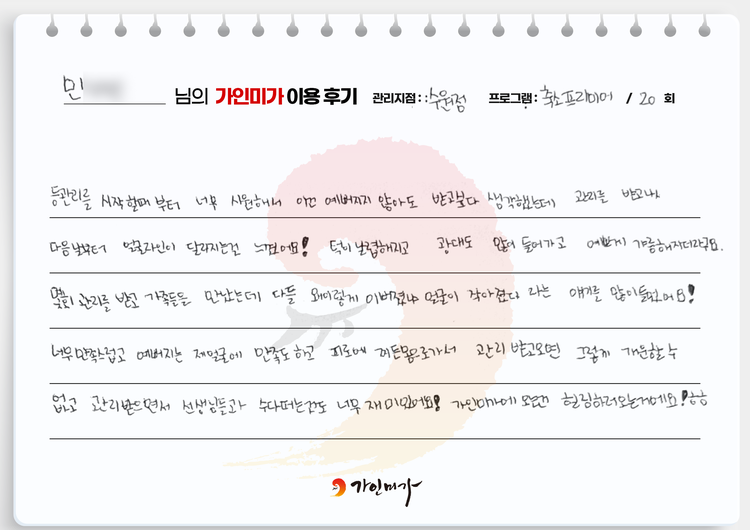 민 님의 가인미가 이용 후기 관리지점 : 수원점 프로그램 : 축소프리미어 / 20 회
등관리를 시작할때 부터 너무 시원해서 이건 예뻐지지 않아도 받고싶다 생각했는데 관리를 받고나
다음날부터 얼굴라인이 달라지는건 느꼈어요! 턱이 날렵해지고 광대도 많이 들어가고 예쁘게 갸름해지더라구요.
몇회 관리를 받고 가족들을 만났는데 다들 왜이렇게 이뻐졌냐 얼굴이 작아졌다 라는 얘기를 많이들었어요!
너무만족스럽고 예뻐지는 제얼굴에 만족도하고 피로에 찌든몸으로가서 관리 받고오면 그렇게 개운할 수
없고 관리받으면서 선생님들과 수다떠는것도 너무 재미있어요! 가인미가에 오면 힐링하러오는거에요! ㅎㅎ
가인미가